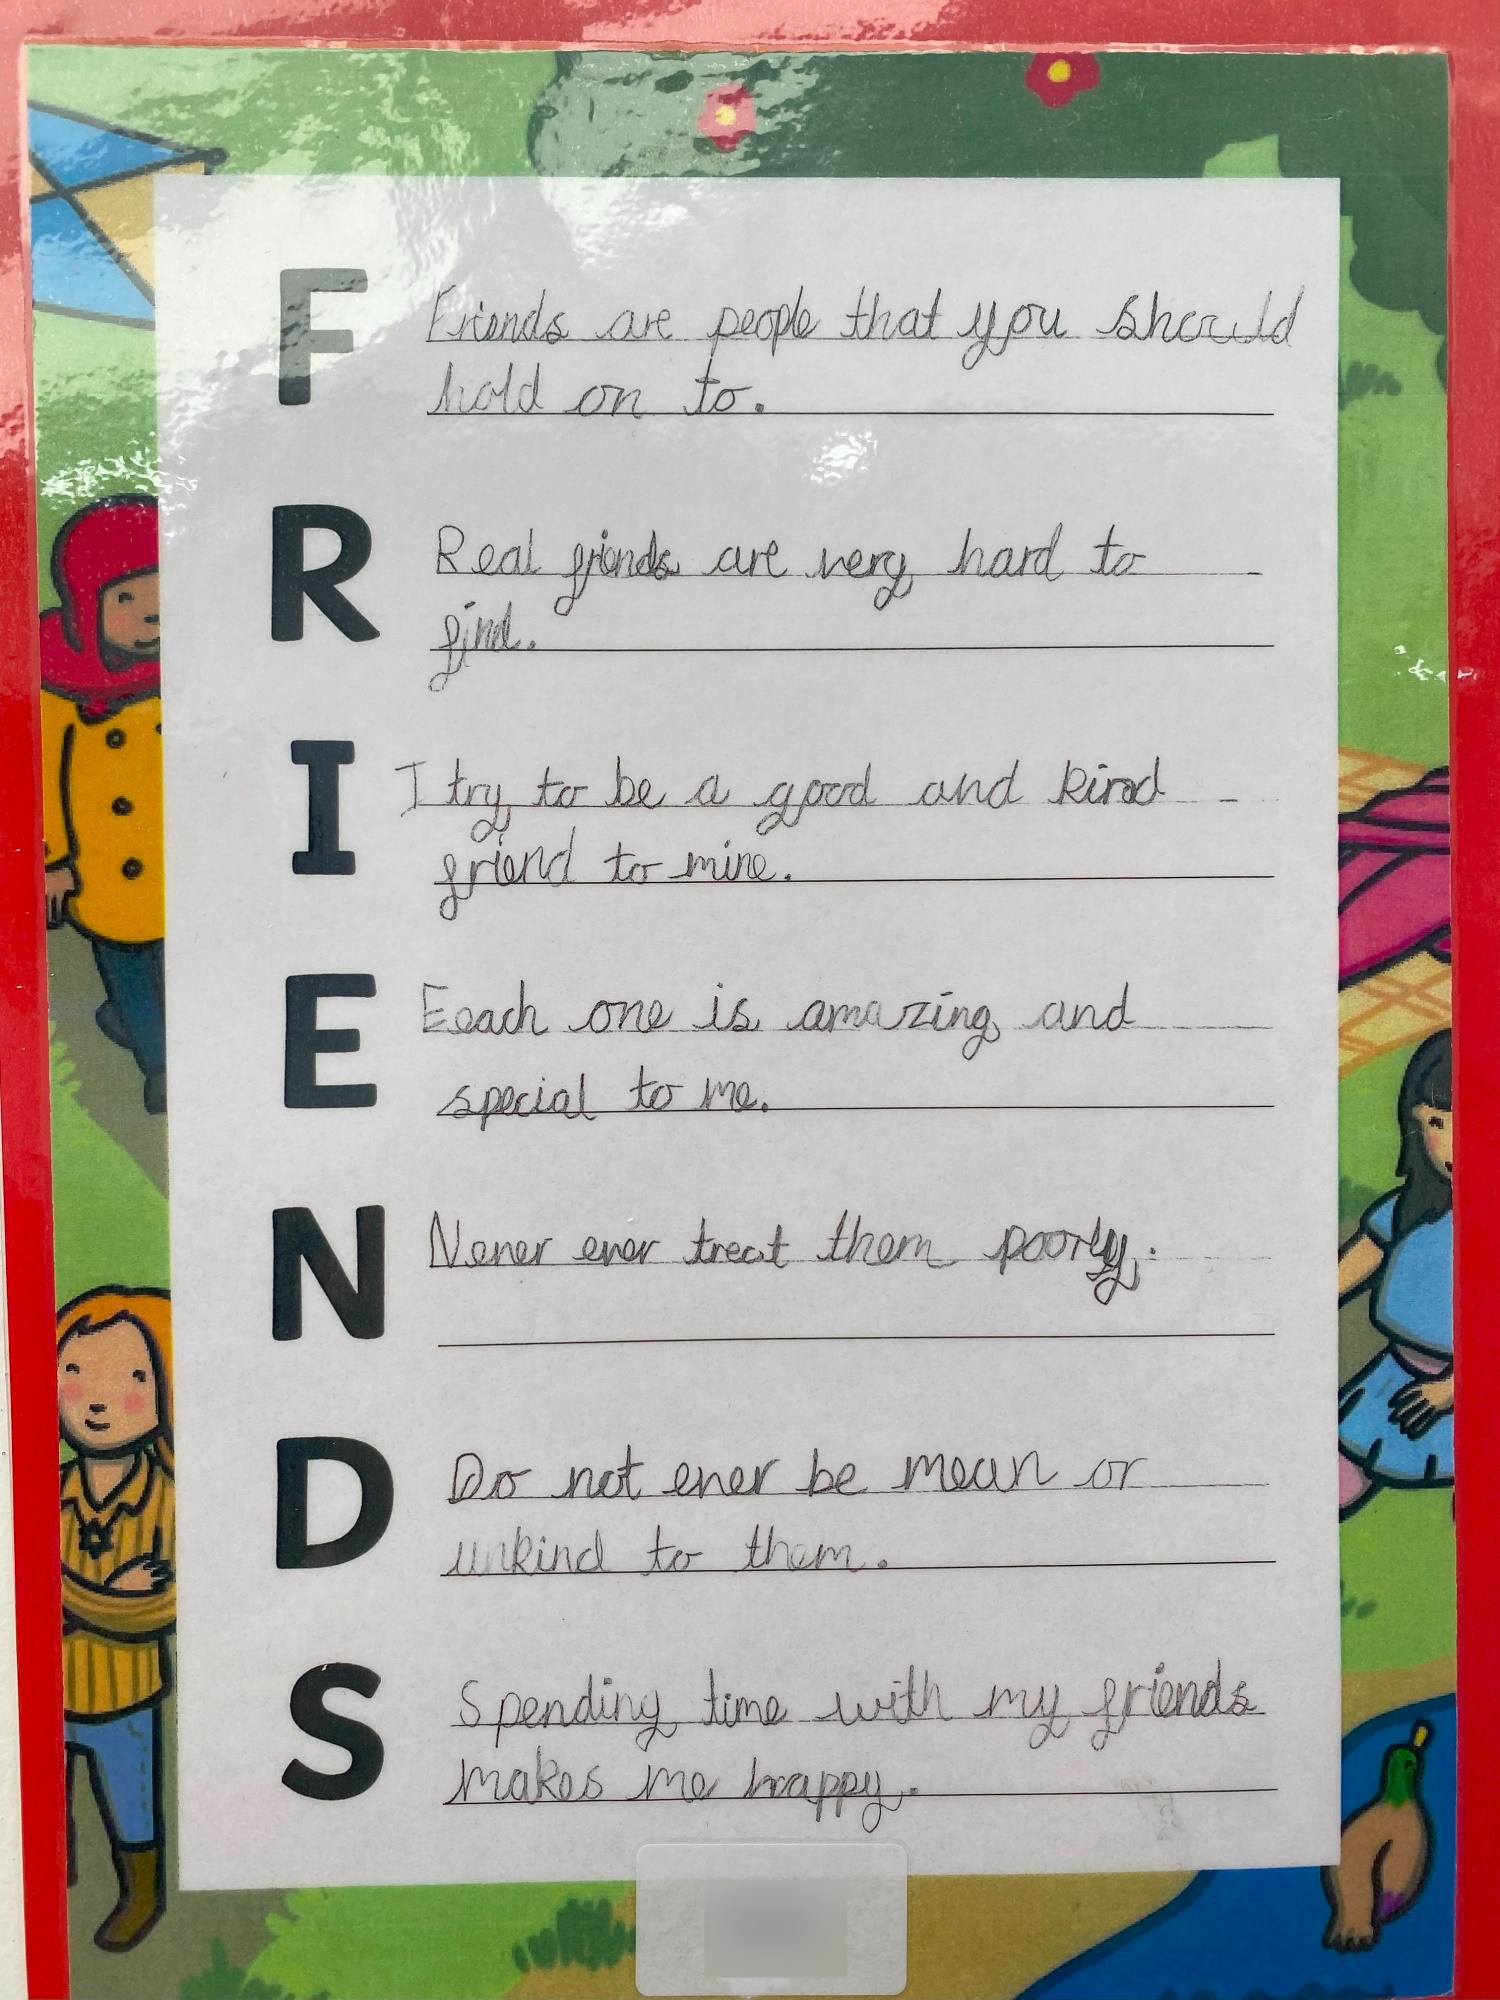 F
Friends are people that you should
hold on to.
R
Real friends are very hard to
find.
I
I try to be a good and kind
friend to mine.
E
Eeach one is amazing and
special to me.
N
Never ever treat them poorly.
D
Do not ever be mean or
unkind to them.
S
Spending time with my friends
makes me happy.